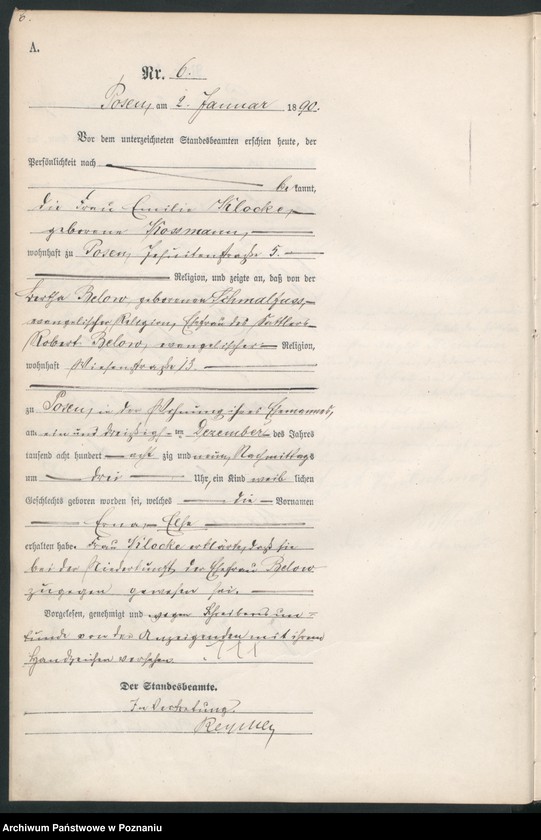 6.
A.
Nr. 6.
Posen, am 2. Januar 1890.
Vor dem unterzeichneten Standesbeamten erschien heute, der
Persönlichkeit nach
be kannt,
die Frau Emilie Klocke,
geborene Kossmann,
wohnhaft zu Posen, Jesuitenstraße 5.
Religion, und zeigte an, daß von der
Bertha Below, geborenen Schmalfuss,
evangelischer Religion, Ehefrau des Sattlers
Robert Below, evangelischer Religion,
wohnhaft Wiesenstraße 13.
zu Posen, in der Wohnung ihres Ehemannes,
am ein und dreißigsten Dezember des Jahres
tausend acht hundert acht zig und neun, Nachmittags
um drei Uhr, ein Kind weib lichen
Geschlechts geboren worden sei, welches die Vornamen
Erna Else
erhalten habe. Frau Klocke erklärte, daß sie
bei der Niederkunft der Ehefrau Below
zugegen gewesen sei.
Vorgelesen, genehmigt und wegen Schreibensun=
kunde von der Anzeigenden mit ihrem
Handzeichen versehen. +++
Der Standesbeamte.
In Vertretung.
Archiwum Państwowe w Poznaniu